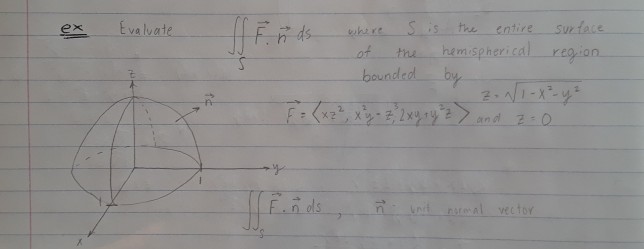 ex Evaluate ∬_S F⃗ · n⃗ ds where S is the entire surface
of the hemispherical region
bounded by
z = √(1-x²-y²)
F⃗ = ⟨xz², x²y - z³, 2xy + y²z⟩ and z = 0
z
n⃗
y
1
1
x
∬_S F⃗ · n⃗ ds , n⃗ - unit normal vector